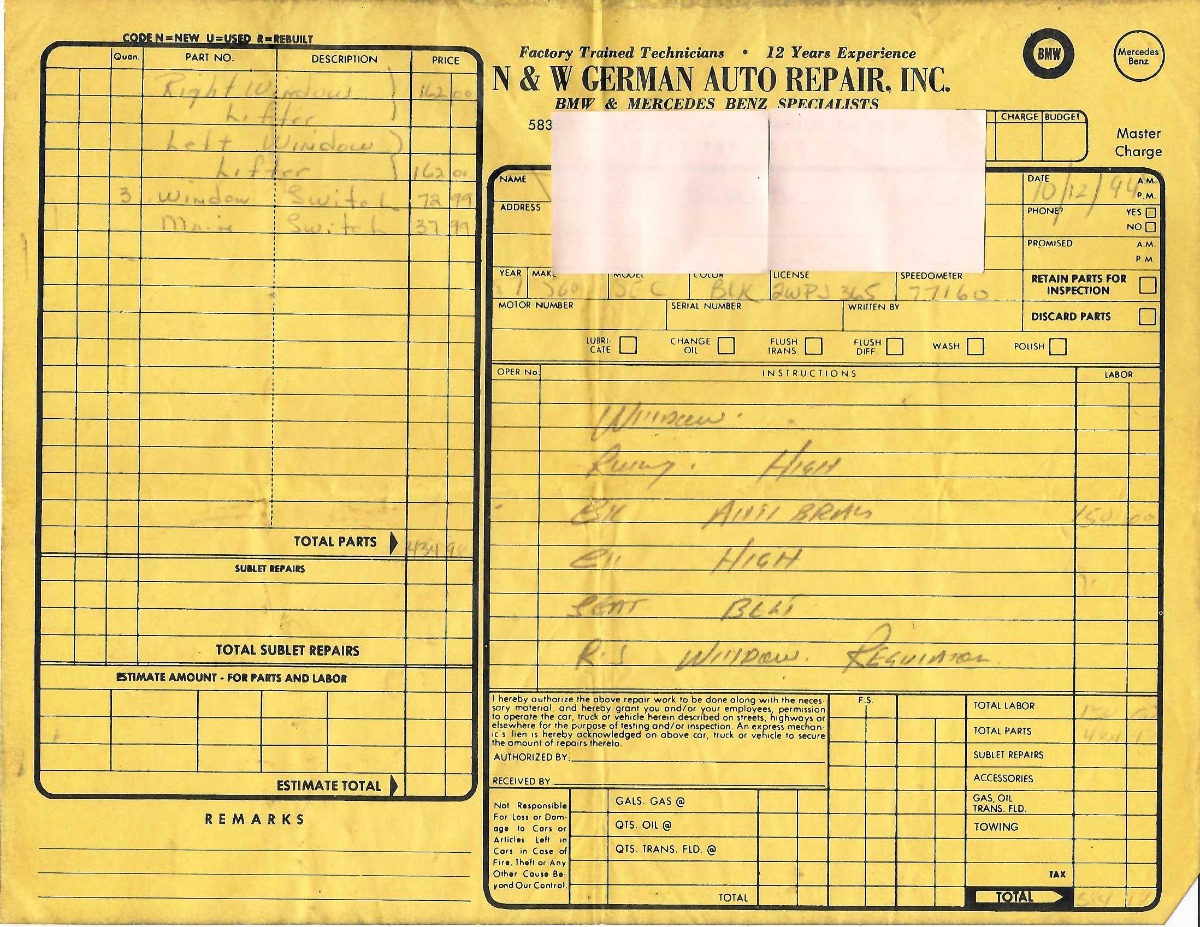 CODE N=NEW U=USED R=REBUILT
Quan. PART NO. DESCRIPTION PRICE
Right Window 162 00
Lifter
Left Window
Lifter 162 00
3 Window Switch 72 99
Main Switch 37 99
TOTAL PARTS 434 98
SUBLET REPAIRS
TOTAL SUBLET REPAIRS
ESTIMATE AMOUNT - FOR PARTS AND LABOR
ESTIMATE TOTAL
REMARKS
Factory Trained Technicians • 12 Years Experience
N & W GERMAN AUTO REPAIR, INC.
BMW & MERCEDES BENZ SPECIALISTS
BMW
Mercedes Benz
583
CHARGE BUDGET
Master
Charge
NAME
ADDRESS
DATE 10/12/94 A.M.
P.M.
PHONE? YES
NO
PROMISED A.M.
P.M.
YEAR MAKE MODEL COLOR LICENSE SPEEDOMETER
560 SEC BLK 2WPJ365 77160
RETAIN PARTS FOR
INSPECTION
MOTOR NUMBER SERIAL NUMBER WRITTEN BY
DISCARD PARTS
LUBRI-
CATE
CHANGE
OIL
FLUSH
TRANS
FLUSH
DIFF
WASH
POLISH
OPER. No. INSTRUCTIONS LABOR
Window.
High
Anti Brals 150 00
High
Seat Belt
R.S Window. Regulator
I hereby authorize the above repair work to be done along with the neces-
sary material, and hereby grant you and/or your employees, permission
to operate the car, truck or vehicle herein described on streets, highways or
elsewhere for the purpose of testing and/or inspection. An express mechan-
ic's lien is hereby acknowledged on above car, truck or vehicle to secure
the amount of repairs thereto.
AUTHORIZED BY:
RECEIVED BY
F.S.
TOTAL LABOR
TOTAL PARTS
SUBLET REPAIRS
ACCESSORIES
GAS, OIL
TRANS. FLD.
TOWING
TAX
TOTAL
Not Responsible
For Loss or Dam-
age to Cars or
Articles Left in
Cars in Case of
Fire, Theft or Any
Other Cause Be-
yond Our Control.
GALS. GAS @
QTS. OIL @
QTS. TRANS. FLD. @
TOTAL